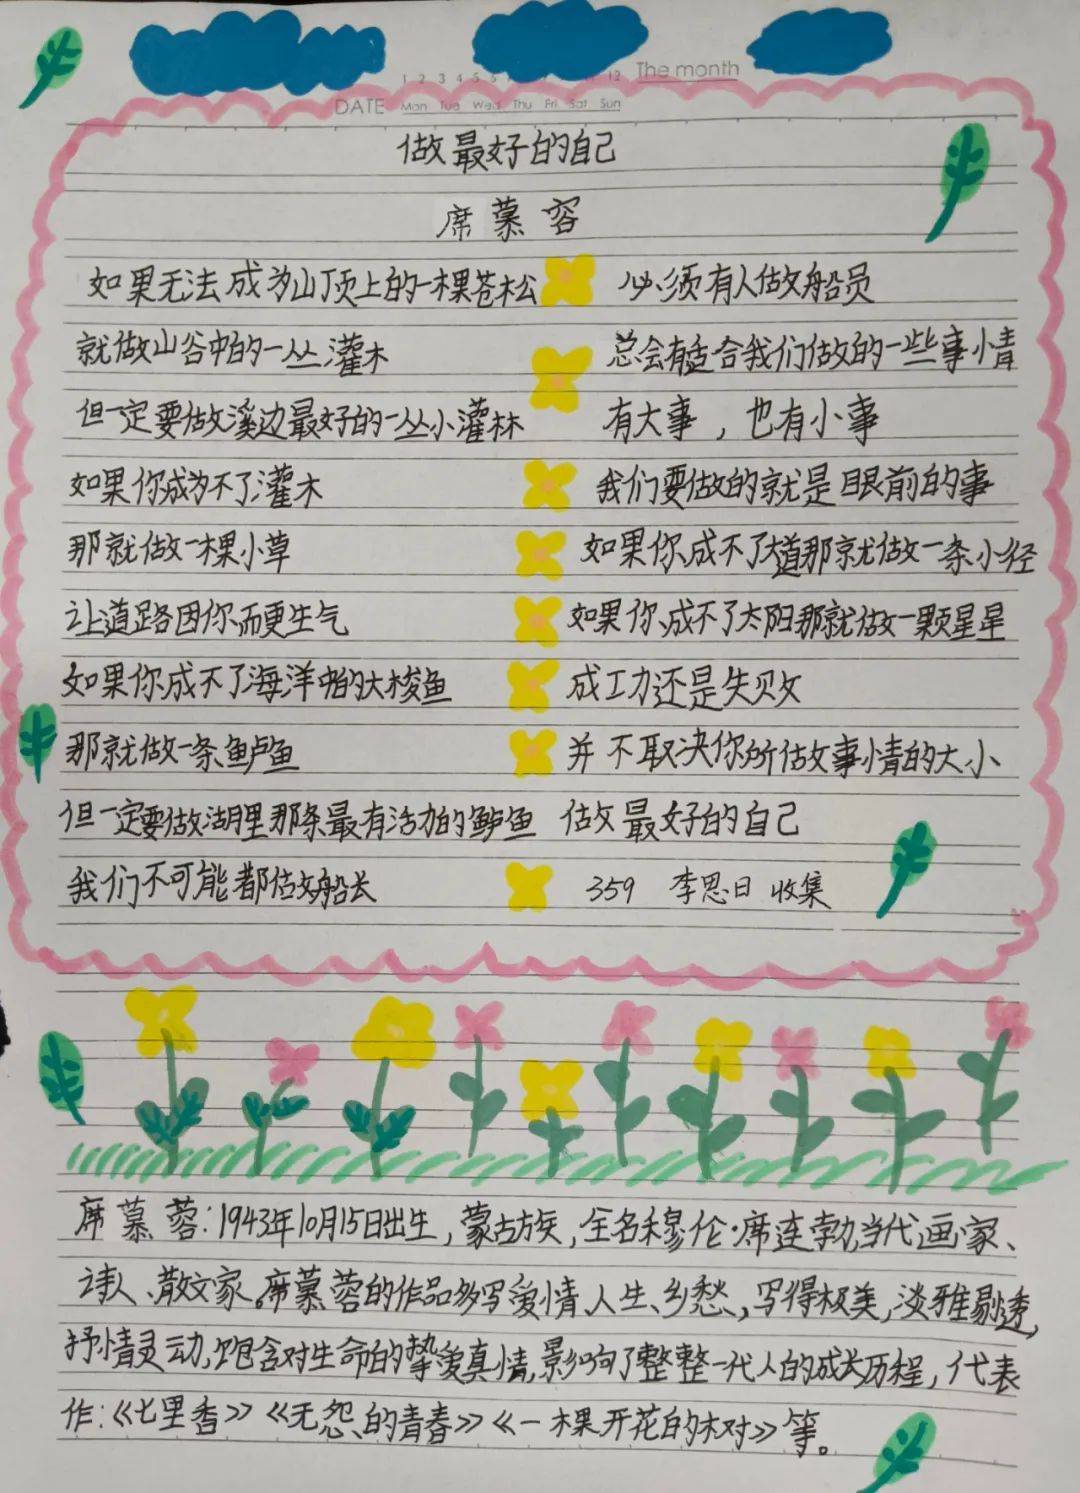 1 2 3 4 5 6 12 The month
DATE Mon Tue Wed Thu Fri Sat Sun
做最好的自己
席慕容
如果无法成为山顶上的一棵苍松
就做山谷中的一丛灌木
但一定要做溪边最好的一丛小灌林
如果你成为不了灌木
那就做一棵小草
让道路因你而更生气
如果你成不了海洋中的大梭鱼
那就做一条鲈鱼
但一定要做湖里那条最有活力的鲈鱼
我们不可能都做船长
必须有人做船员
总会有适合我们做的一些事情
有大事，也有小事
我们要做的就是眼前的事
如果你成不了大道那就做一条小径
如果你成不了太阳那就做一颗星星
成功还是失败
并不取决你所做事情的大小
做最好的自己
359 李思日 收集
席慕蓉：1943年10月15日出生，蒙古族，全名穆伦·席连勃，当代画家、
诗人、散文家。席慕蓉的作品多写爱情、人生、乡愁，写得极美，淡雅剔透，
抒情灵动，饱含对生命的挚爱真情，影响了整整一代人的成长历程，代表
作：《七里香》《无怨的青春》《一棵开花的树》等。